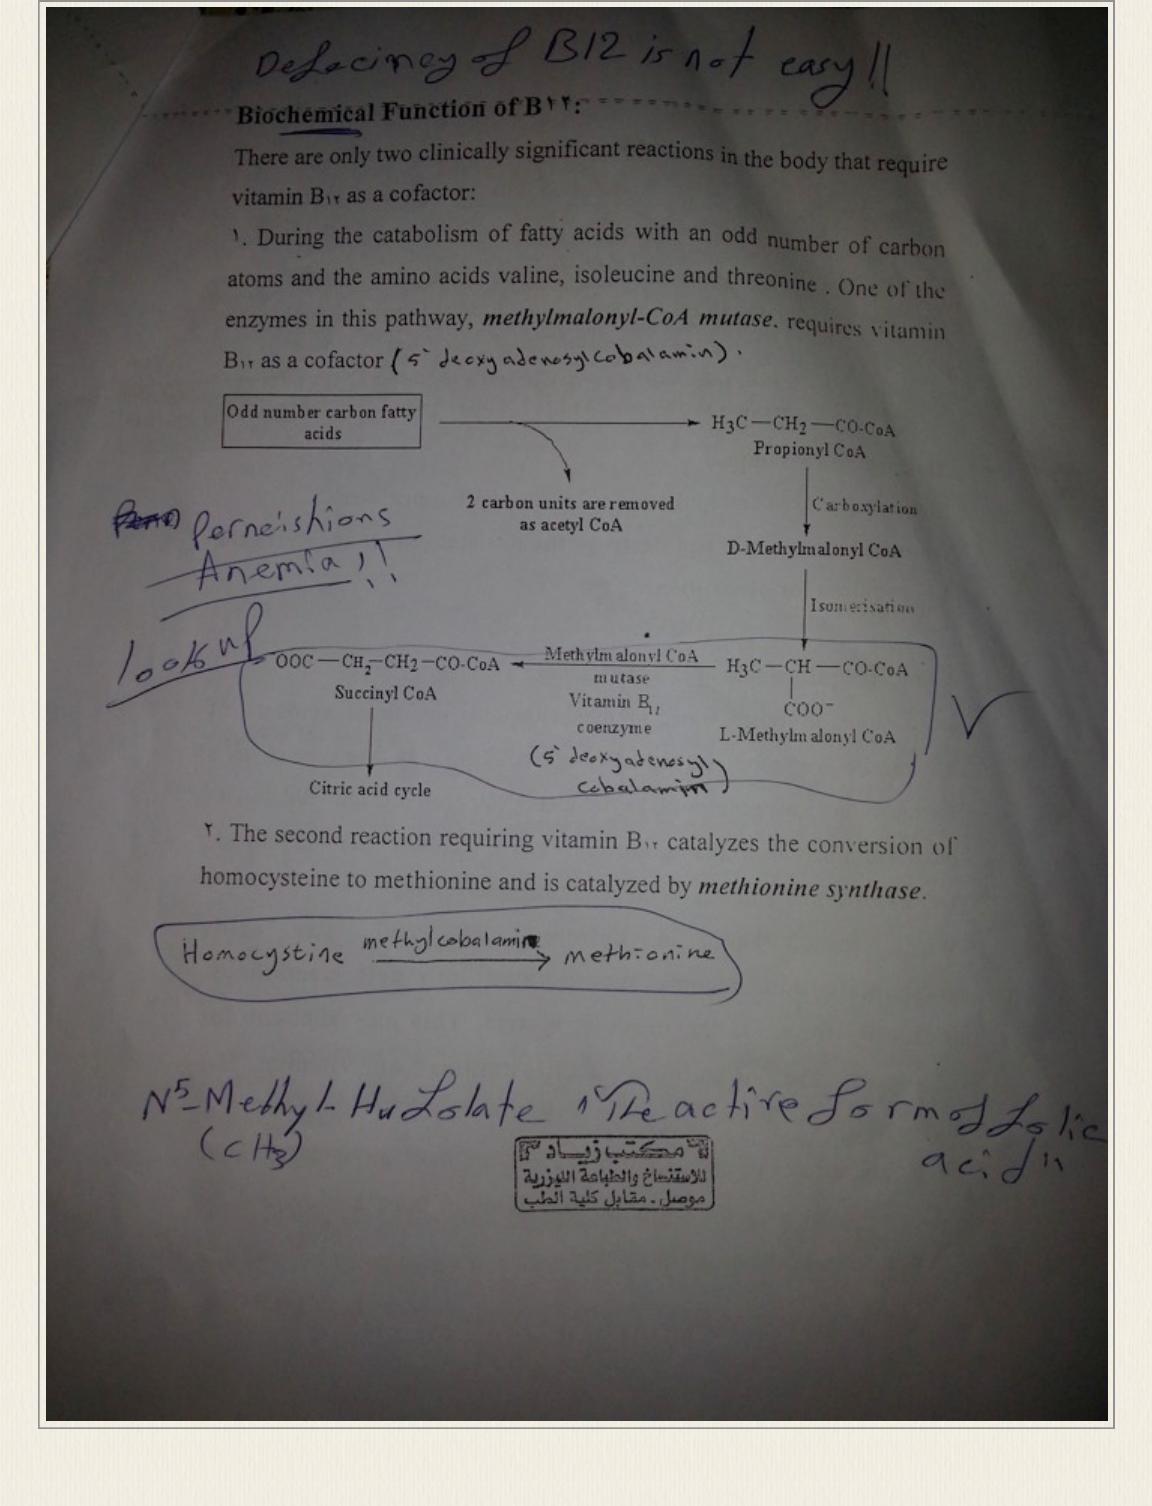 Defaciney of B12 is not easy!!
Biochemical Function of B١٢:
There are only two clinically significant reactions in the body that require
vitamin B١٢ as a cofactor:
١. During the catabolism of fatty acids with an odd number of carbon
atoms and the amino acids valine, isoleucine and threonine . One of the
enzymes in this pathway, methylmalonyl-CoA mutase. requires vitamin
B١٢ as a cofactor (5` deoxyadenosylcobalamin).
Odd number carbon fatty
acids
H3C—CH2—CO-CoA
Propionyl CoA
2 carbon units are removed
as acetyl CoA
Carboxylation
D-Methylmalonyl CoA
Perneishions
Anemia!!
Isomerisation
look up
OOC—CH2—CH2—CO-CoA
Succinyl CoA
Methylmalonyl CoA
mutase
Vitamin B12
coenzyme
(5` deoxyadenosyl
cobalamin)
H3C—CH—CO-CoA
COO⁻
L-Methylmalonyl CoA
Citric acid cycle
٢. The second reaction requiring vitamin B١٢ catalyzes the conversion of
homocysteine to methionine and is catalyzed by methionine synthase.
Homocystine methylcobalamin methionine
N5-Methyl-H4folate "The active form of folic
(CH3) acid"
مكتب زياد
للاستنساخ والطباعة الليزرية
موصل - مقابل كلية الطب